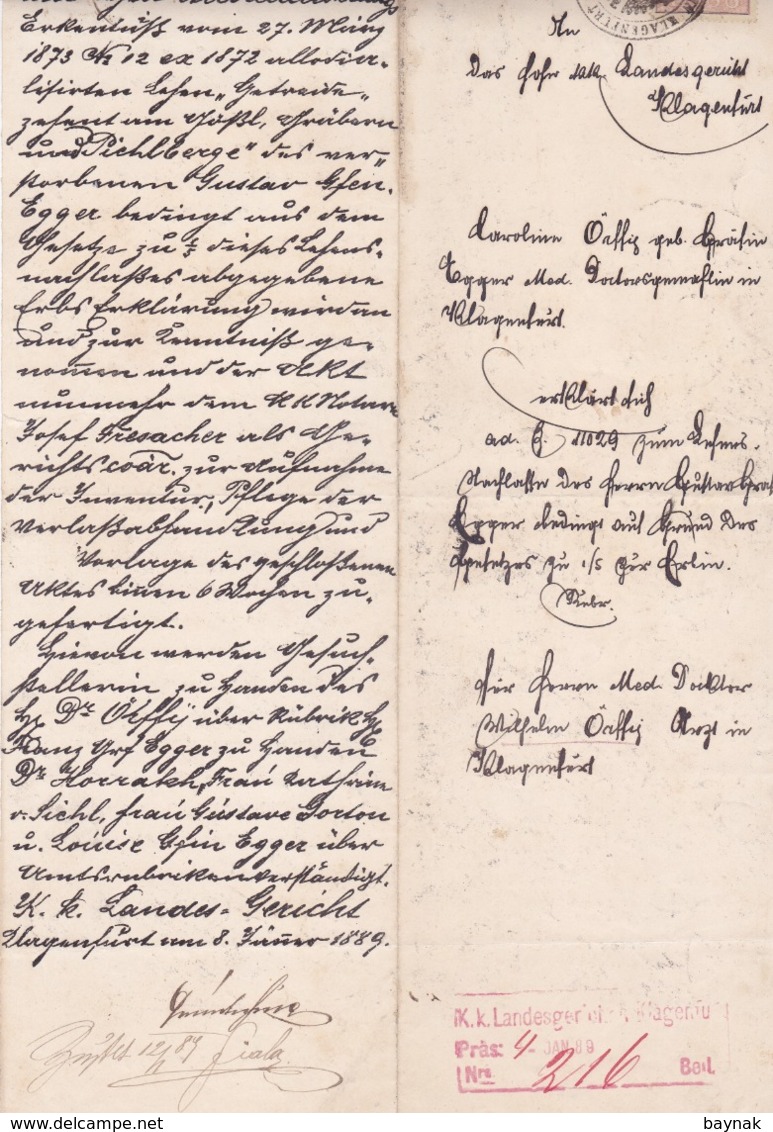 Erkentniß vom 27. März
1873 № 12 ex 1872 allodia-
lisirten Lehen „Getreide-
zehent am Gößl, Gräbern
und Pichlberge" des ver-
storbenen Gustav Gfen.
Egger bedingt aus dem
Gesetze zu 1/5 dieses Lehens-
nachlaßes abgegebene
Erbs Erklärung wird an
und zur Kenntniß ge-
nommen und der Akt
nunmehr dem kk Notar
Josef Fresacher als Ge-
richtscoär. zur Aufnahme
der Inventur, Pflege der
Verlaßabhandlung und
Vorlage des geschloßenen
Aktes binnen 6 Wochen zu-
gefertigt.
Hievon werden Gesuch-
stellerin zu Handen des
H. Dr Öttly über Rubrik H.
Franz Grf Egger zu Handen
Dr Horrakh, Frau Kathrin
v. Sichl, Frau Gustave Gorton
u. Louise Gfin Egger über
Amtsrubriken verständigt.
K. k. Landes-Gericht
Klagenfurt am 8. Jänner 1889.
Zustlt 12/1 89 Fiala
KLAGENFURT
An
Das hohe k.k. Landesgericht
Klagenfurt
Karoline geb. Gräfin
Egger Med. Doctorsgemahlin in
Klagenfurt.
erklärt sich
ad. Z. 11029 zum Lehens-
Nachlasse des Herrn Gustav Graf
Egger bedingt auf Grund des
Gesetzes zu 1/5 zur Erbin.
Rubr.
Für Herrn Med. Doktor
Wilhelm Arzt in
Klagenfurt
K.k. Landesgericht Klagenfu
Präs: 4 JAN 89
Nrs. 216 Beil.
baynak